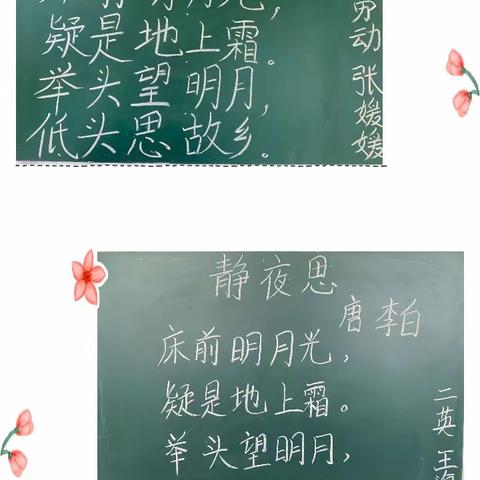 疑是地上霜。
举头望明月,
低头思故乡。
动 张媛媛
静夜思
唐 李白
床前明月光,
疑是地上霜。
举头望明月,
二英 王